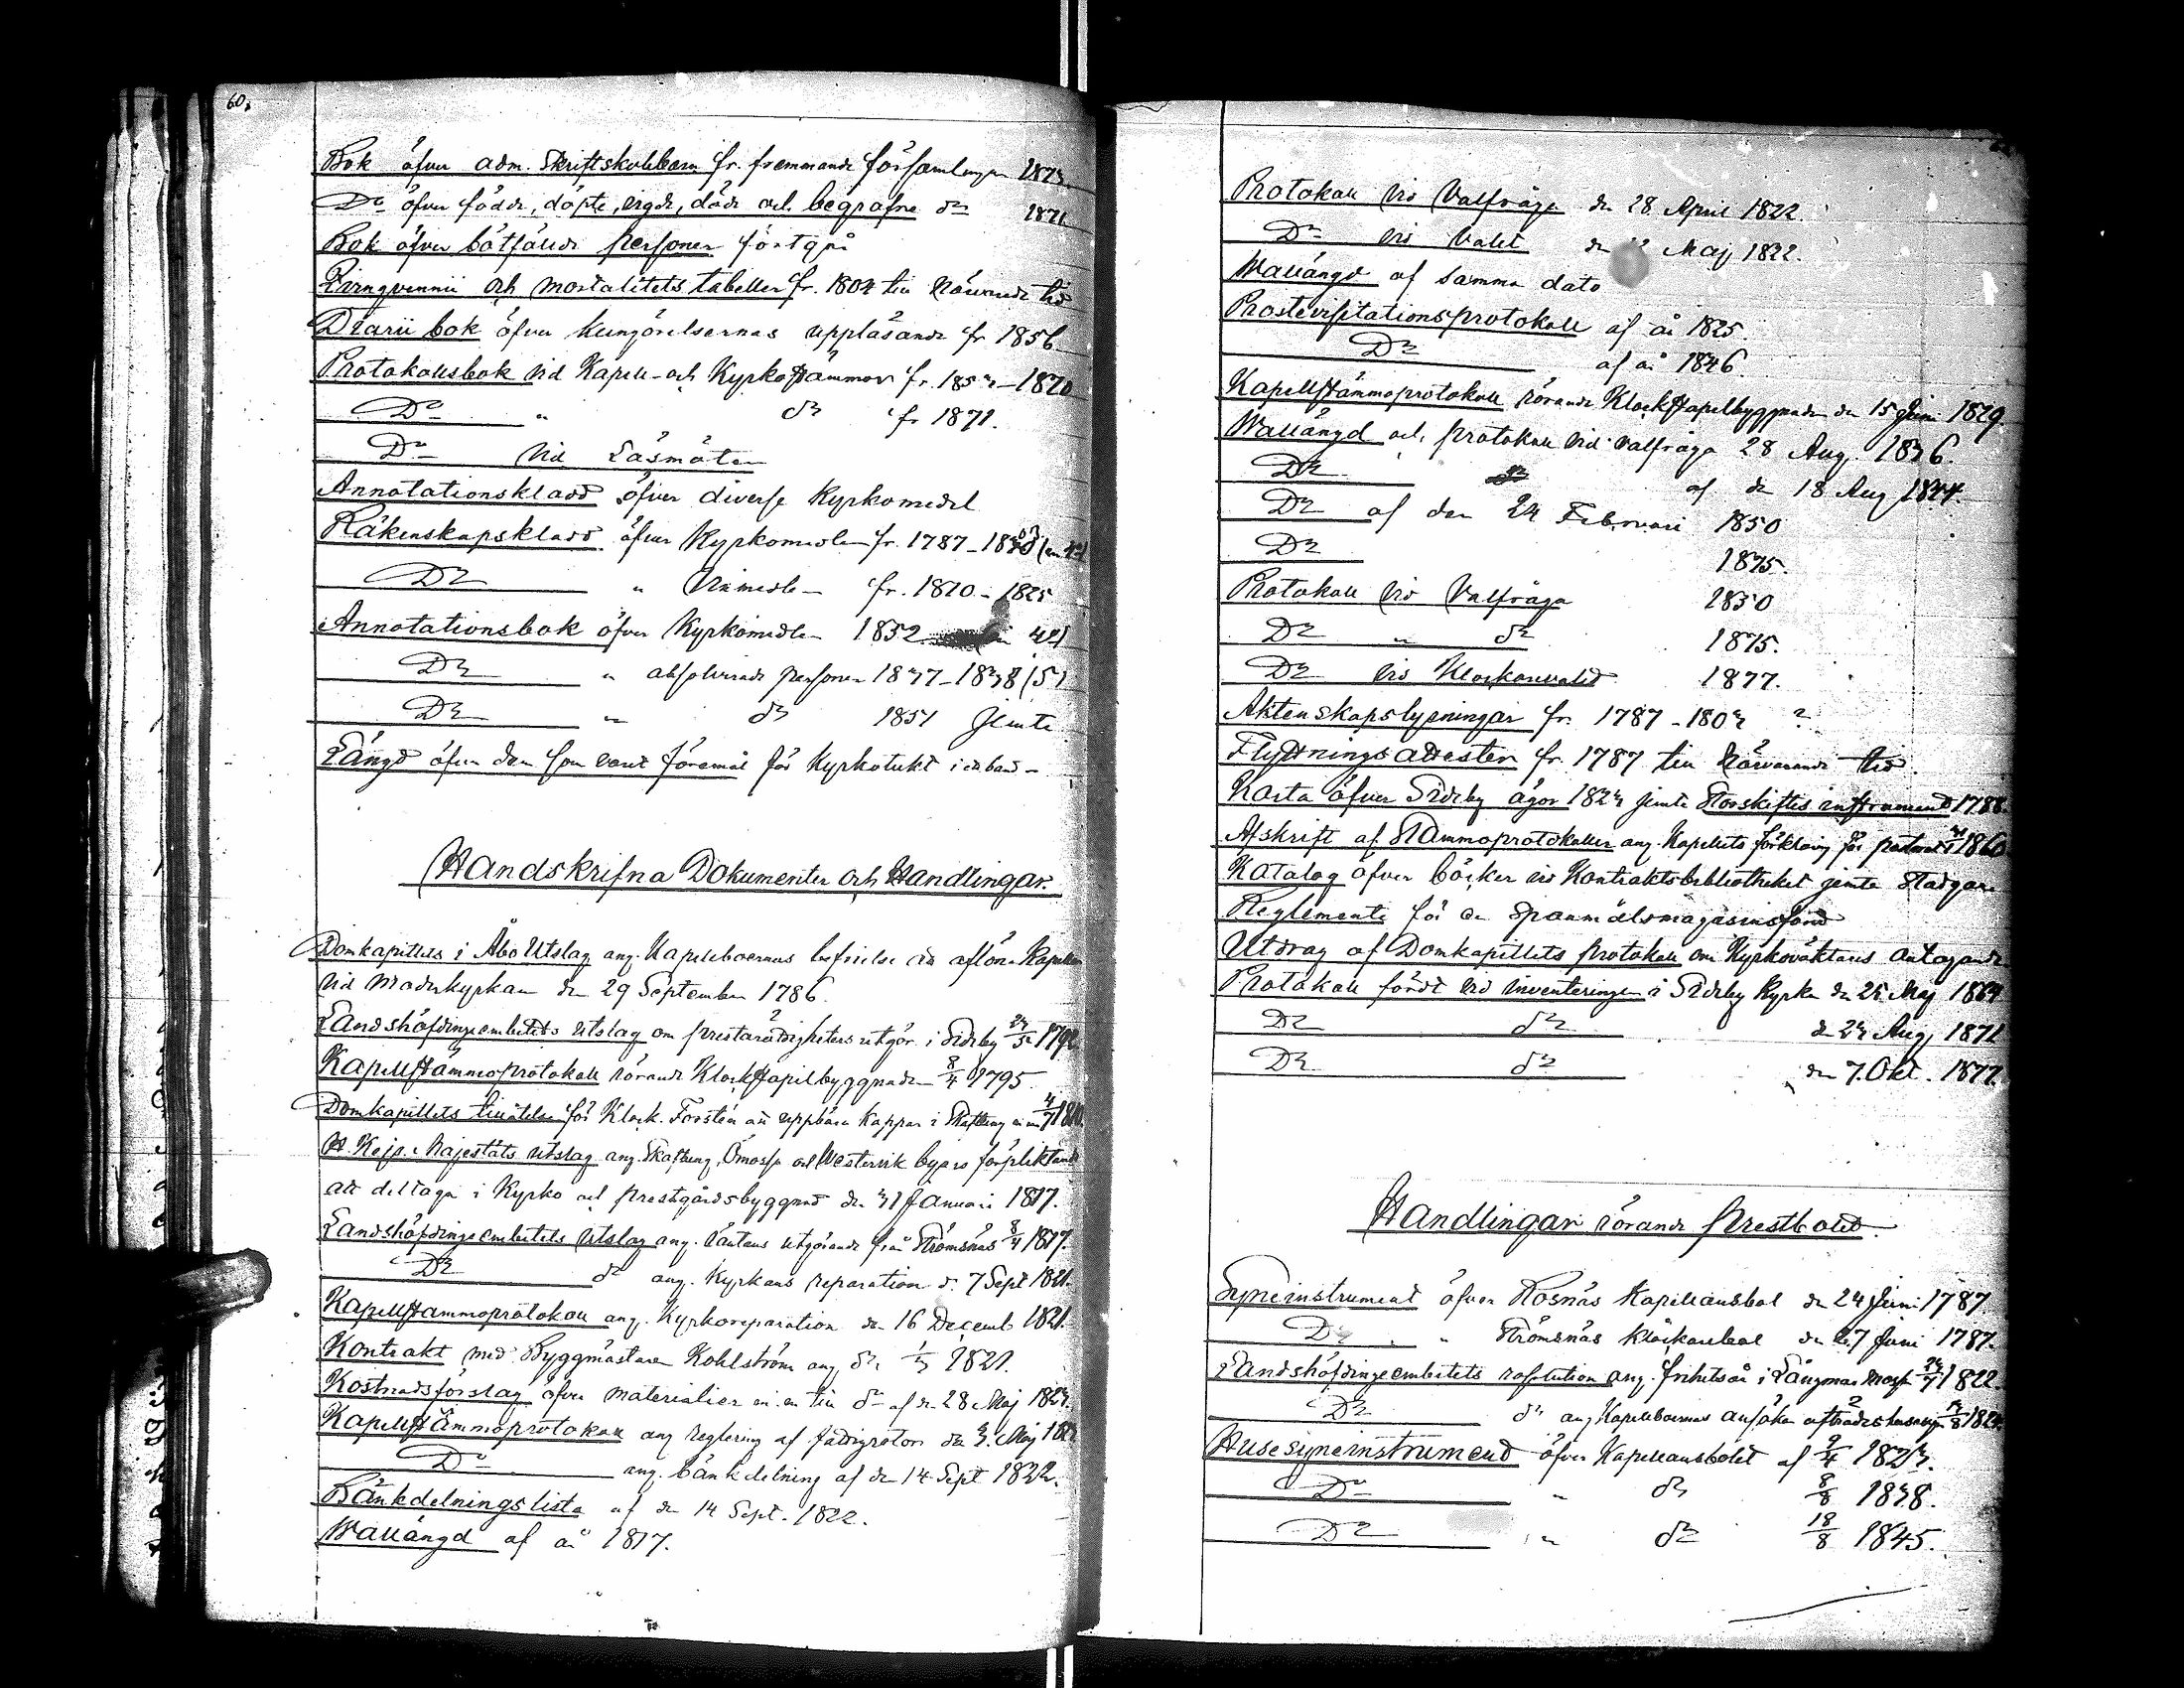 60.
Bok öfver adm. Skriftskolebarn fr. fremmande församlingar 1873.
Do öfver födde, döpte, vigde, döde och begrafne do 1871
Bok öfver båtfälde personer förtgå
och mortalitets tabeller fr. 1804 till närvarande tid
Diarii bok öfver kungörelsernas uppläsande fr 1856
Protokollsbok vid Kapell- och Kyrkostämmor fr. 1853-1870
Do " do fr 1871.
Do vid Läsmöten
Annotationskladd öfver diverse Kyrkomedel
Räkenskapskladd öfver Kyrkomedlen fr. 1787-18
Do " Vinmedlen fr. 1810-1825
Annotationsbok öfver Kyrkomedlen 1832 42)
Do " absolverade personer 1837-1838 (53)
Do " do 1851 jemte
Längd öfver dem som varit föremål för Kyrkotukt i ett band -
Handskrifna Dokumenter och Handlingar.
Domkapitlets i Åbo Utslag ang. Kapellboernas befrielse att aflöna Kapellan
vid Moderkyrkan den 29 September 1786.
Landshöfdingeembetets utslag om prestarättigheters utgör. i Sideby 1792
Kapellstämmoprotokoll rörande Klockstapelbyggnaden 8/4 1795.
Domkapitlets tillåtelse för Klock. Forstén att uppbära Kappar i Skaftung
H. Kejs. Majestäts utslag ang. Skaftung, Ömossa och Westervik byars förpliktande
att deltaga i Kyrko och prestgårdsbyggnad den 31 Januari 1817.
Landshöfdingeembetets Utslag ang. räntans utgörande från Strömsnäs 8/4 1817.
Do do ang. Kyrkans reparation d. 7 Sept 1821.
Kapellstämmoprotokoll ang. Kyrkoreparation den 16 Decemb 1821.
Kontrakt med Byggmästaren Kohlström ang do 1/3 1821.
Kostnadsförslag öfver materialier till do af d. 28 Maj 1823.
Kapellstämmoprotokoll ang reglering af fattigroten den 3. Maj 182
Do ang. bänkdelning af den 14 Sept 1822.
Bänkdelningslista af den 14 Sept. 1822.
Wallängd af år 1817.
Protokoll vid Valfråga den 28 April 1822.
Do vid Valet den Maj 1822.
Wallängd af samma dato
Prostevisitationsprotokoll af år 1825.
Do af år 1846.
Kapellstämmoprotokoll rörande Klockstapelbyggnaden den 15 Juni 1829.
Wallängd och protokoll vid valfråga 28 Aug. 1836.
Do af den 18 Aug 1844.
Do af den 24 Februari 1850
Do 1875.
Protokoll vid Valfråga 1850
Do " do 1875.
Do vid Klockarevalet 1877.
Äktenskapslysningar fr. 1787-1803 ?
Flyttningsattester fr. 1787 till närvarande tid.
Karta öfver Sideby ägor 1823 jemte Storskiftes instrument 1788.
Afskrift af Stämmoprotokoller ang. Kapellets förklaring för pastorat 1860
Katalog öfver böcker vid Kontraktsbibliotheket jemte Stadgar
Reglemente för den Spanmålsmagasinsfond
Utdrag af Domkapitlets protokoll om Kyrkoväktares antagande
Protokoll fördt vid inventeringen i Sideby Kyrka den 25 Maj 1864
Do do d 23 Aug. 1871
Do do den 7. Okt. 1877.
Handlingar rörande Prestbolet.
Syneinstrument öfver Kosnäs Kapellansbol den 24 Juni 1787.
Do " Strömsnäs Klockarebol den 27 Juni 1787.
Landshöfdingeembetets resolution ang. frihetsår i Långmar Mossa 1822.
Do do ang Kapellboernas ansökan 1824
Husesyneinstrument öfver Kapellansbolet af 9/4 1823.
Do " do 8/8 1838.
Do " do 18/8 1845.